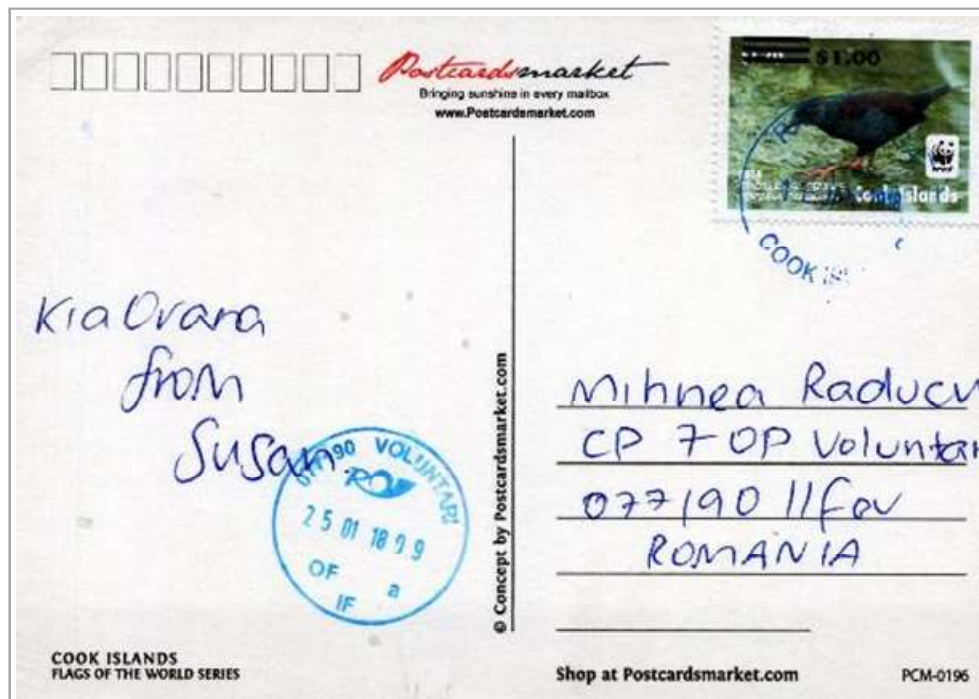 Postcardsmarket
Bringing sunshine in every mailbox
www.Postcardsmarket.com
$1.00
Cook Islands
COOK
Kia Orana
from
Susan
077190 VOLUNTARI
25 01 18 09
OF a
IF
© Concept by Postcardsmarket.com
Mihnea Raducu
CP 7 OP Voluntar
077190 Ilfov
ROMANIA
COOK ISLANDS
FLAGS OF THE WORLD SERIES
Shop at Postcardsmarket.com
PCM-0196